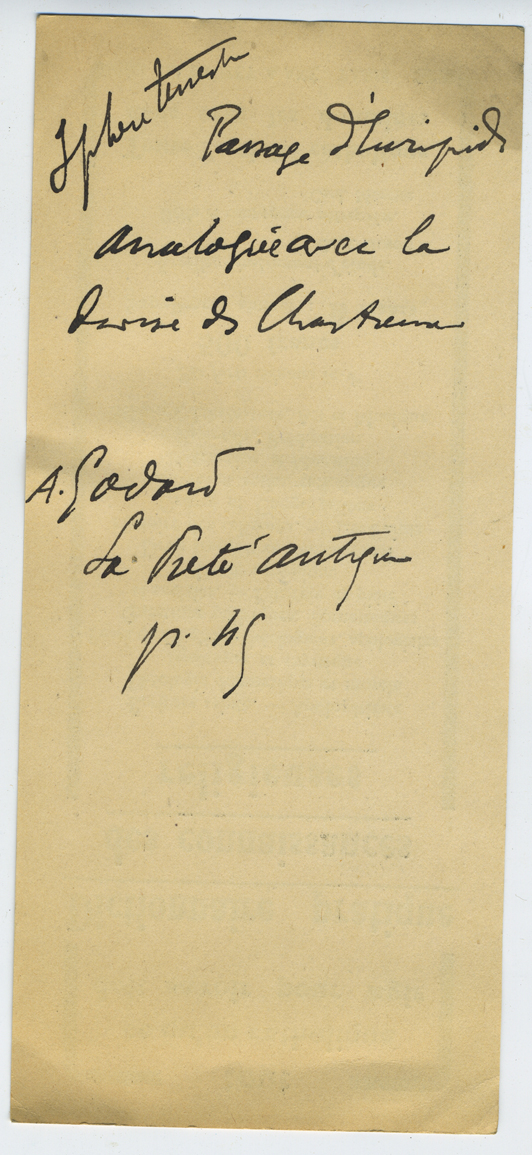 Sphère terrestre
Passage d'Euripide
analogue avec la
devise des Chartreux
A. Godard
La Piété antique
p. 45